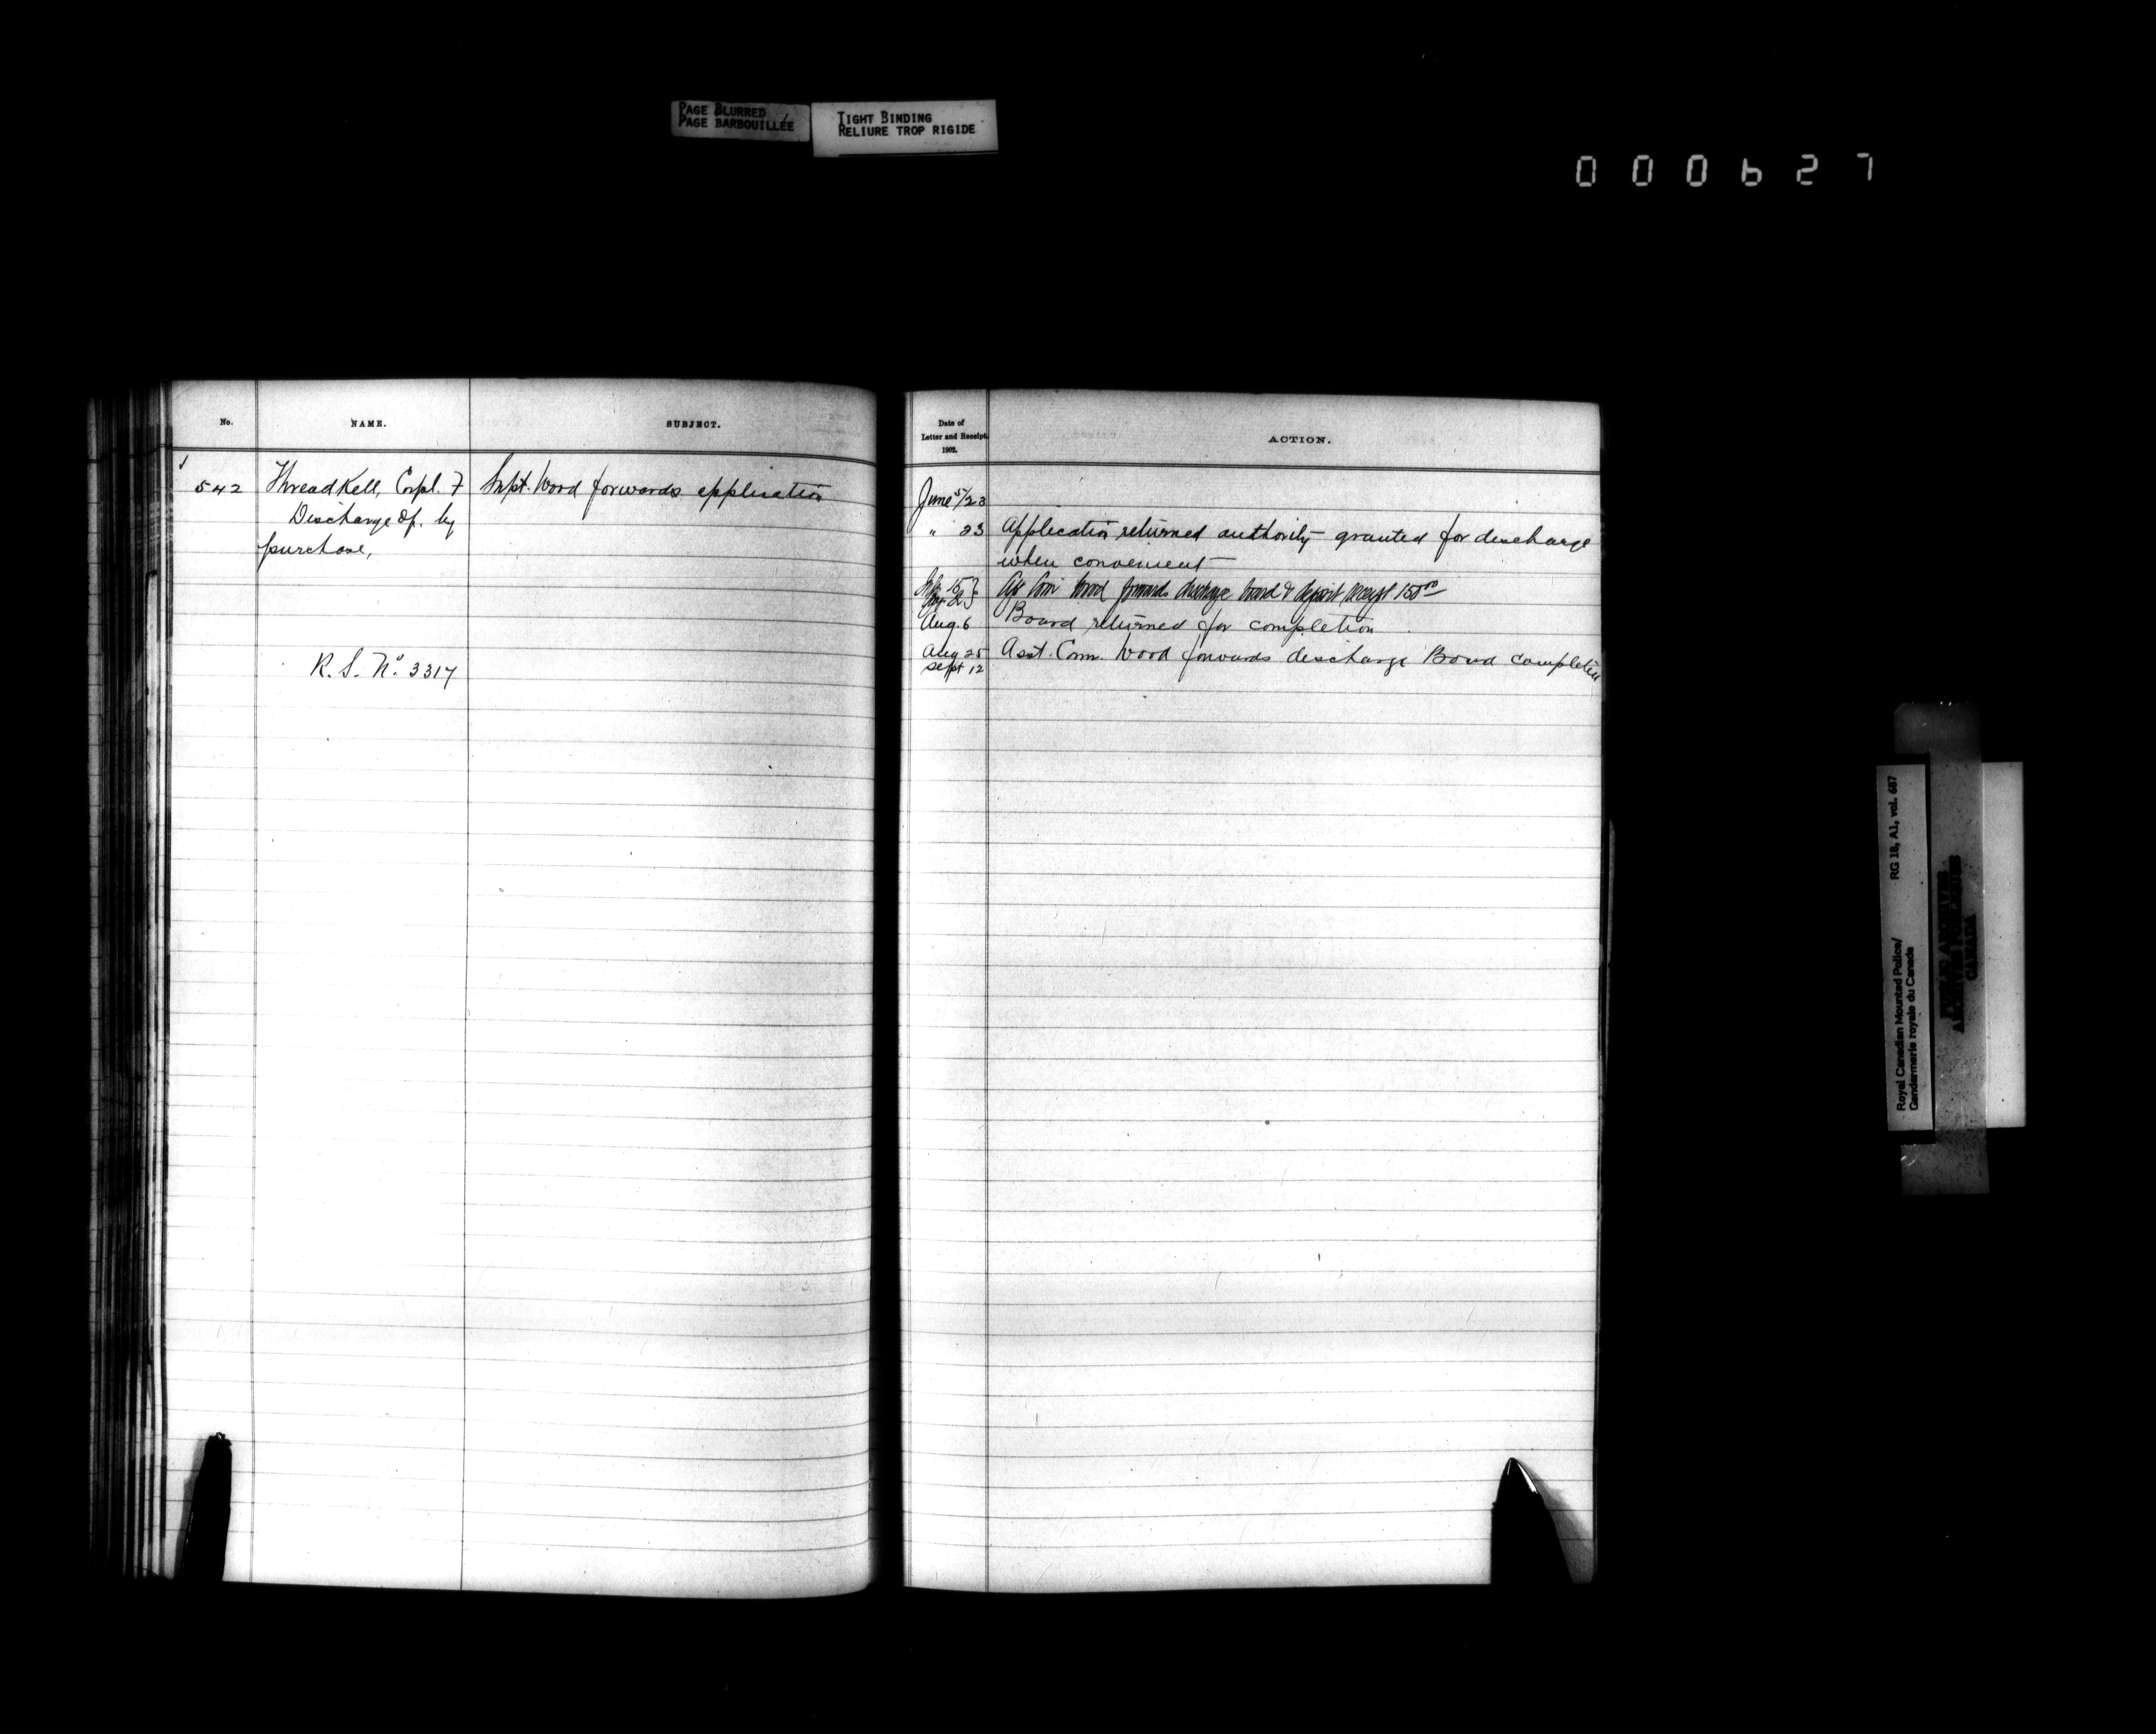 PAGE BLURRED
PAGE BARBOUILLÉE
TIGHT BINDING
RELIURE TROP RIGIDE
000627
No. NAME. SUBJECT.
542 Threadkell, Corpl. F Supt. Wood forwards application
Discharge of. by
purchase,
R. S. No. 3317
Date of
Letter and Receipt.
1902.
ACTION.
June 5/23
" 23 Application returned authority granted for discharge
when convenient
Wood forwards discharge board & deposit receipt 150.00
Aug. 6 Board returned for completion
Aug 25 Asst. Com. Wood forwards discharge Board completed
Sept 12
Royal Canadian Mounted Police/ RG 18, A1, vol. 687
Gendarmerie royale du Canada
PUBLIC ARCHIVES
ARCHIVES PUBLIQUES
CANADA